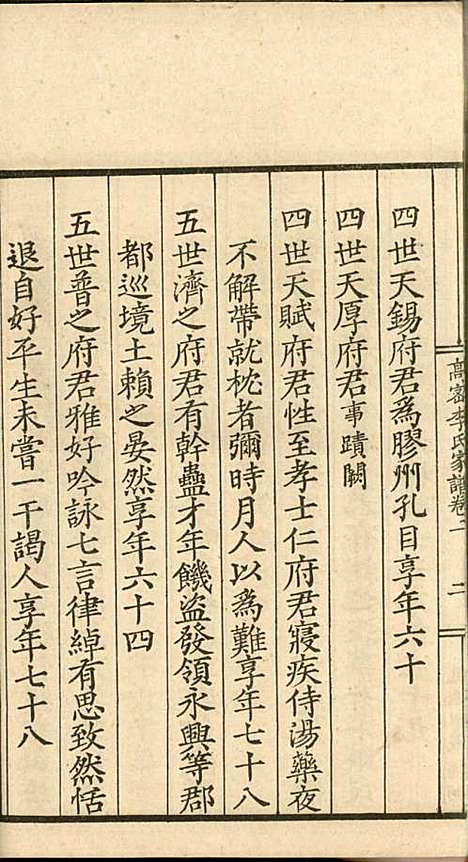 高密李氏家譜卷二
二
四世天錫府君爲膠州孔目享年六十
四世天厚府君事蹟闕
四世天賦府君性至孝士仁府君寢疾侍湯藥夜
不解帶就枕者彌時月人以爲難享年七十八
五世濟之府君有幹蠱才年饑盜發領永興等郡
都巡境土賴之晏然享年六十四
五世普之府君雅好吟詠七言律綽有思致然恬
退自好平生未嘗一干謁人享年七十八